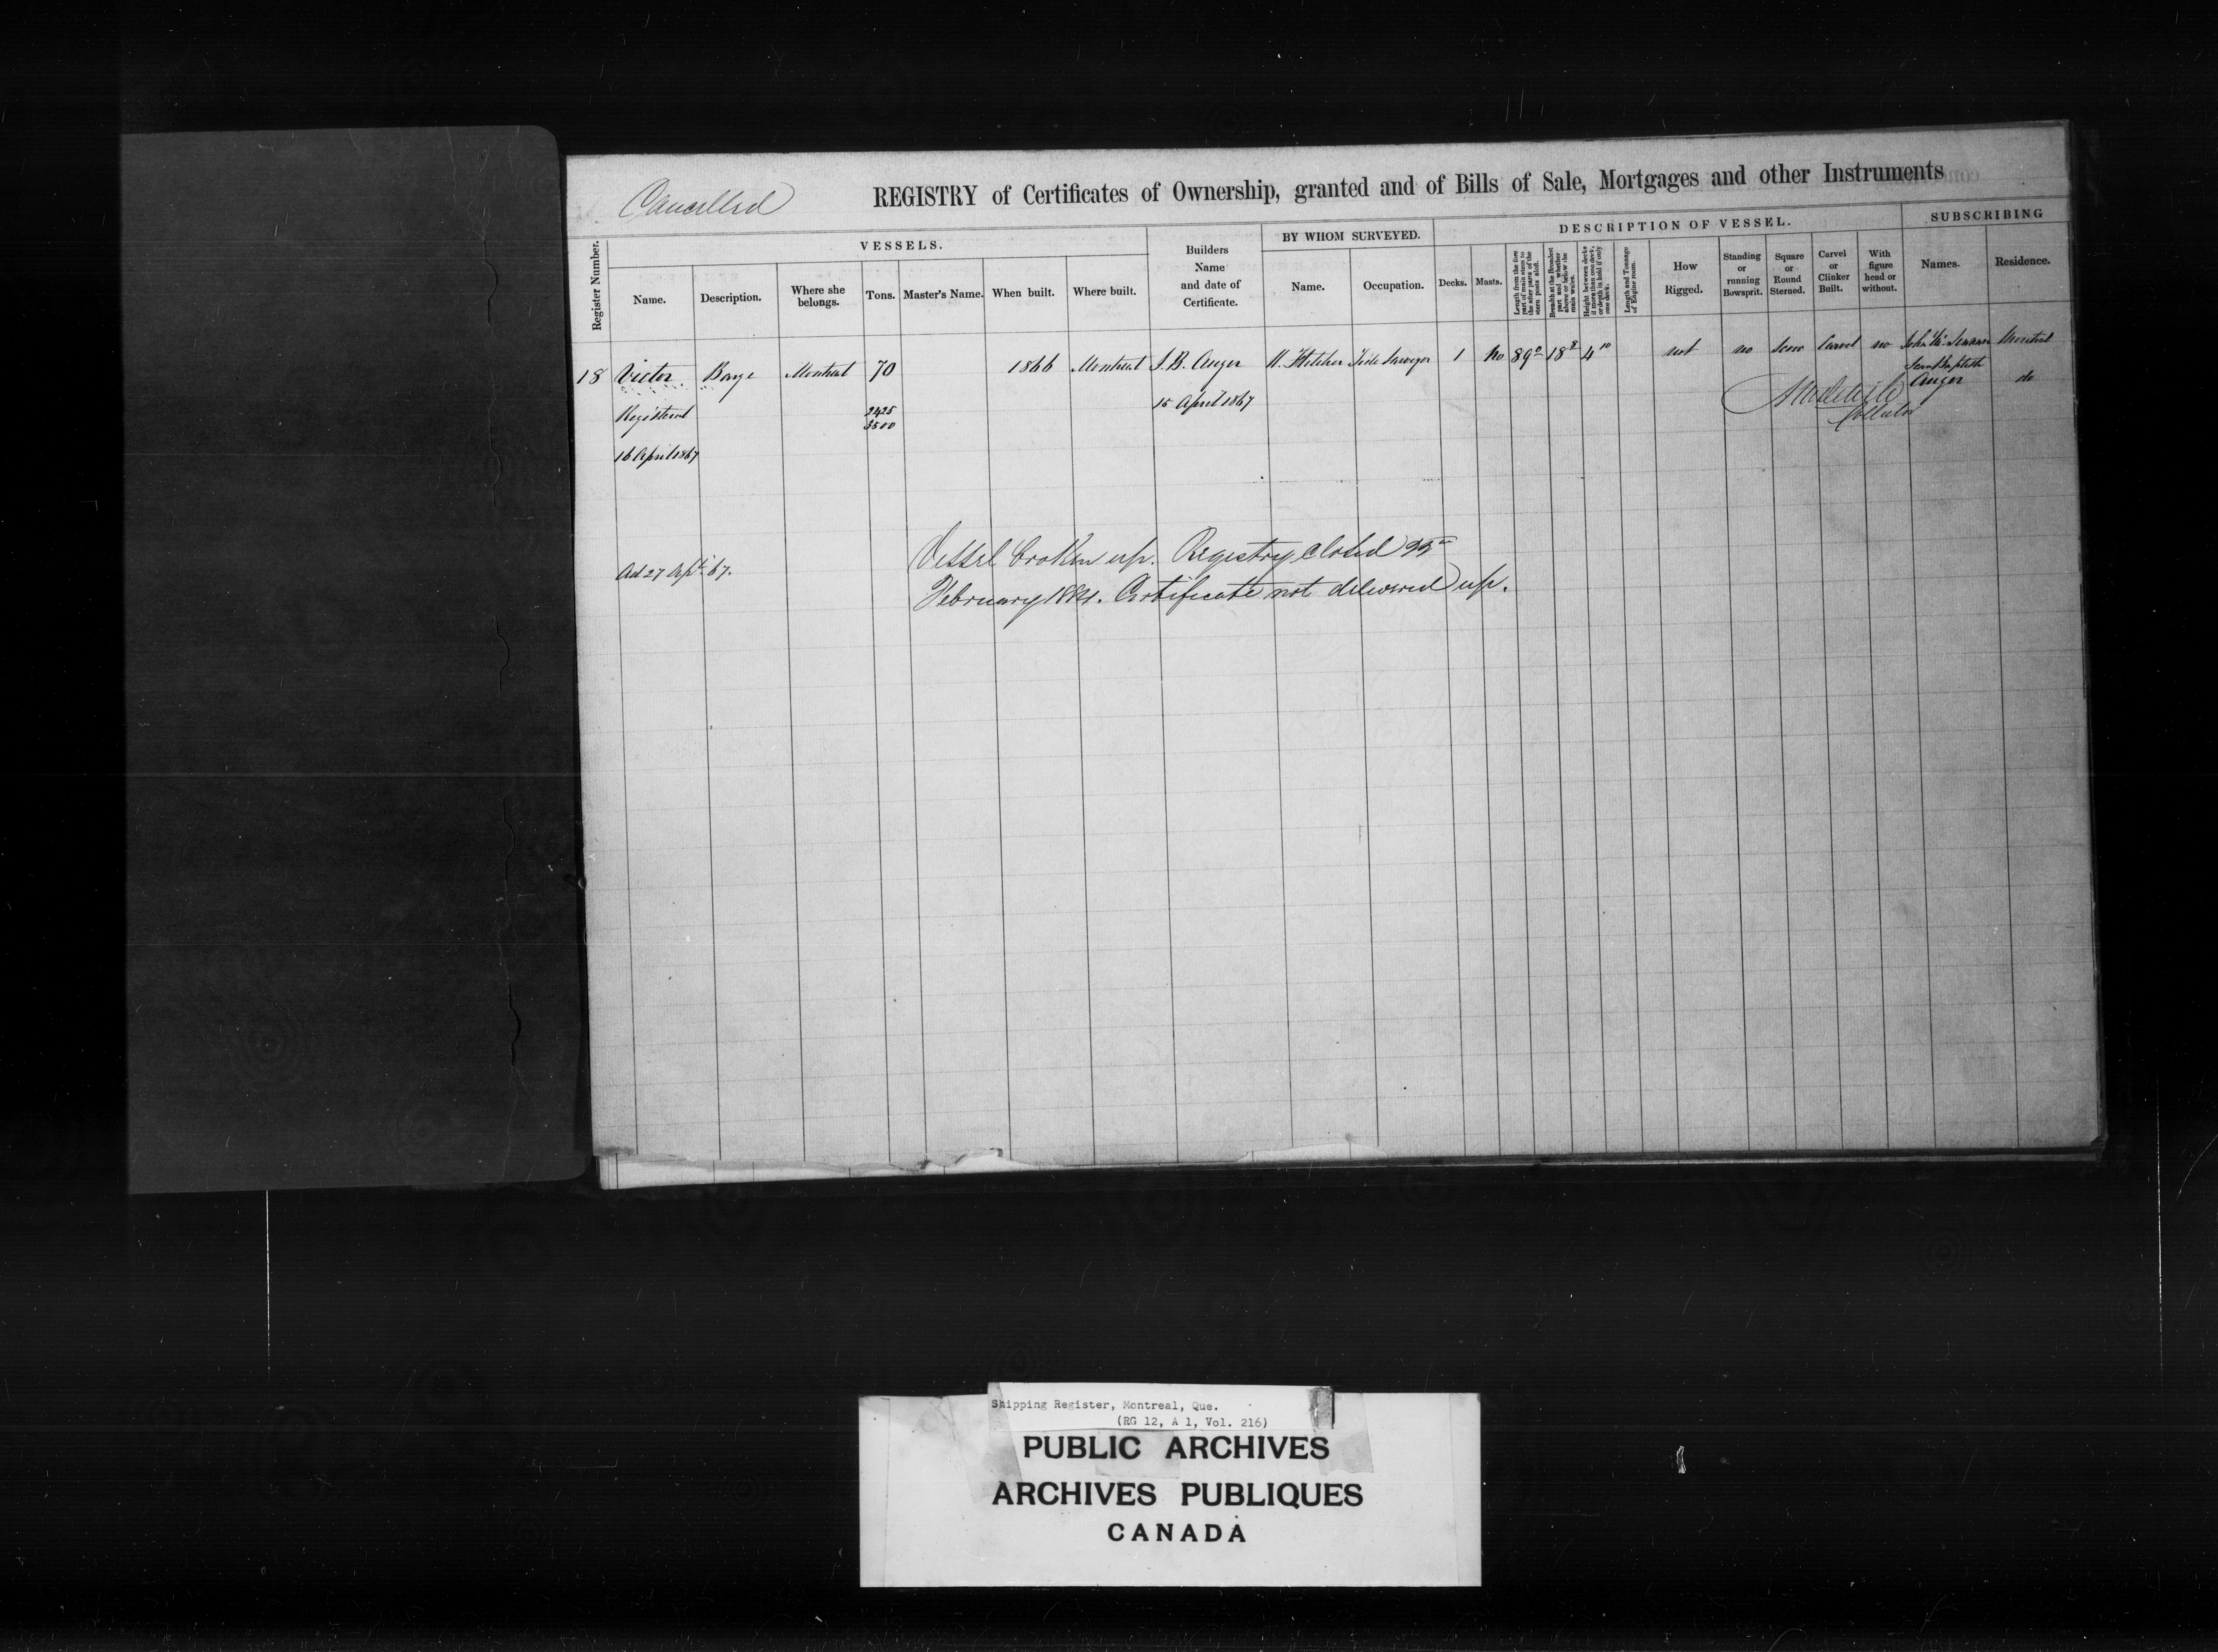 Cancelled
REGISTRY of Certificates of Ownership, granted and of Bills of Sale, Mortgages and other Instruments
Register Number.
VESSELS.
Name.
Description.
Where she belongs.
Tons.
Master's Name.
When built.
Where built.
Builders
Name
and date of
Certificate.
BY WHOM SURVEYED.
Name.
Occupation.
DESCRIPTION OF VESSEL.
Decks.
Masts.
Length from the fore
part of main stem to
the after parts of the
stern posts aloft.
Breadth at the Broadest
part and whether
above or below the
main wales.
Height between decks
if more than one deck,
or depth in hold if only
one deck.
Length and Tonnage
of Engine room.
How
Rigged.
Standing
or
running
Bowsprit.
Square
or
Round
Sterned.
Carvel
or
Clinker
Built.
With
figure
head or
without.
SUBSCRIBING
Names.
Residence.
18 Victor Barge Montreal 70 1866 Montreal J.B. Auger Tide Surveyor 1 no 89 0 18 8 4 10 not no Scow Carvel no John Montreal
Jean Baptiste
Auger do
Collector
Registered
2425
3500
15 April 1867
16 April 1867
Ad 27 Apl 67.
Vessel broken up. Registry closed
February 1884. Certificate not delivered up.
Shipping Register, Montreal, Que.
(RG 12, A 1, Vol. 216)
PUBLIC ARCHIVES
ARCHIVES PUBLIQUES
CANADA